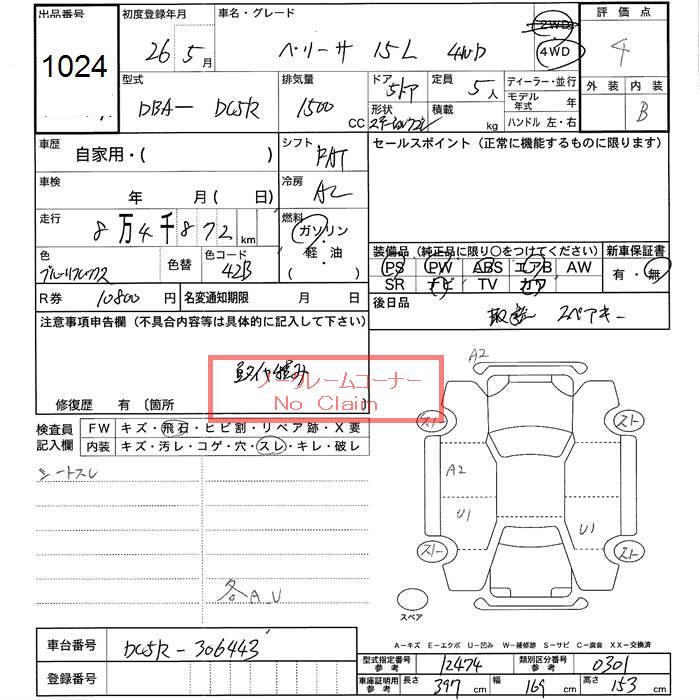 出品番号 初度登録年月 車名・グレード 評価点
1024 26年5月 ベリーサ 15L 4WD 2WD 4WD 4
型式 排気量 ドア 定員 ディーラー・並行 外装 内装
DBA— DC5R 1500 CC 5ドア 5人 モデル年式 年 B
形状 積載 kg ハンドル 左・右
車歴 自家用・( ) シフト FAT セールスポイント (正常に機能するものに限ります)
車検 年 月 ( 日) 冷房 AC
走行 8万4千872km 燃料 ガソリン・軽油 ( )
色 色替 色コード 42B
装備品 (純正品に限り○をつけてください) 新車保証書
PS PW ABS エアB AW 有・無
SR ナビ TV カワ
R券 10800円 名変通知期限 月 日 後日品 取説 スペアキー
注意事項申告欄 (不具合内容等は具体的に記入して下さい)
ノークレームコーナー
No Claim
修復歴 有 〔箇所 〕
検査員記入欄 FW キズ・飛石・ヒビ割・リペア跡・X要
内装 キズ・汚レ・コゲ・穴・スレ・キレ・破レ
シートスレ
A2
スト スト
A2
U1 U1
スト スト
各A.U
スペア
A−キズ E−エクボ U−凹み W−補修跡 S−サビ C−腐食 XX−交換済
車台番号 DC5R-306443
型式指定番号参考 12474 類別区分番号参考 0301
登録番号
車庫証明用参考 長さ 397cm 幅 169cm 高さ 153cm